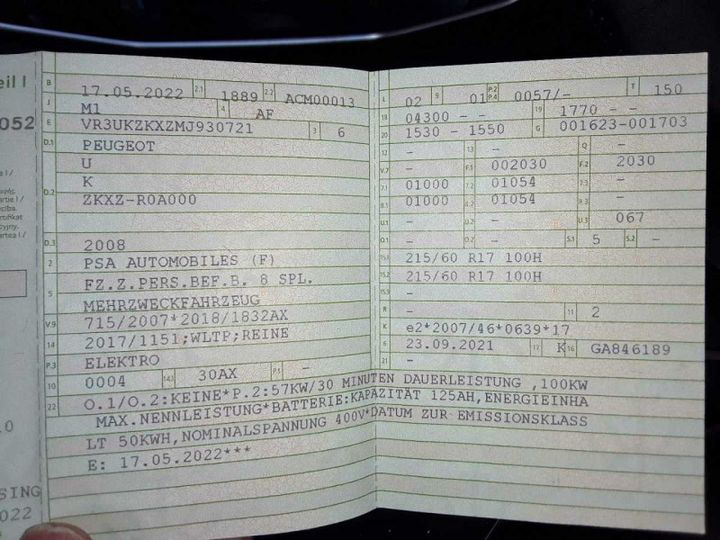 eil I
052
B 17.05.2022 2.1 1889 2.2 ACM00013
J M1 4 AF
E VR3UKZKXZMJ930721 3 6
D.1 PEUGEOT
U
D.2 K
ZKXZ-R0A000
D.3 2008
2 PSA AUTOMOBILES (F)
5 FZ.Z.PERS.BEF.B. 8 SPL.
MEHRZWECKFAHRZEUG
V.9 715/2007*2018/1832AX
14 2017/1151;WLTP;REINE
P.3 ELEKTRO
10 0004 14.1 30AX P.1 -
22 O.1/O.2:KEINE*P.2:57KW/30 MINUTEN DAUERLEISTUNG ,100KW
MAX.NENNLEISTUNG*BATTERIE:KAPAZITÄT 125AH,ENERGIEINHA
LT 50KWH,NOMINALSPANNUNG 400V*DATUM ZUR EMISSIONSKLASS
E: 17.05.2022***
L 02 9 01 P.2 P.4 0057/- T 150
18 04300 - - 19 1770 - -
20 1530 - 1550 G 001623-001703
12 - 13 - Q -
V.7 - F.1 002030 F.2 2030
7.1 01000 7.2 01054 7.3 -
8.1 01000 8.2 01054 8.3 -
U.1 - U.2 - U.3 067
O.1 - O.2 - S.1 5 S.2 -
15.1 215/60 R17 100H
15.2 215/60 R17 100H
15.3 -
R - 11 2
K e2*2007/46*0639*17
6 23.09.2021 17 K 16 GA846189
21 -
SING
022